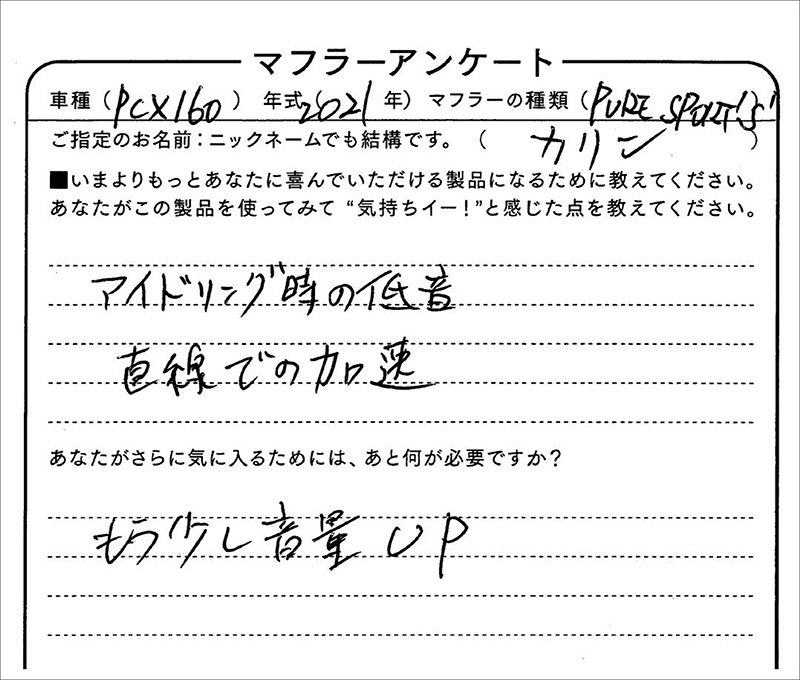 マフラーアンケート
車種（PCX160）年式（2021年）マフラーの種類（PURE SPORT'S'
ご指定のお名前：ニックネームでも結構です。（カリン）
■いまよりもっとあなたに喜んでいただける製品になるために教えてください。
あなたがこの製品を使ってみて“気持ちイー！”と感じた点を教えてください。
アイドリング時の低音
直線での加速
あなたがさらに気に入るためには、あと何が必要ですか？
もう少し音量UP